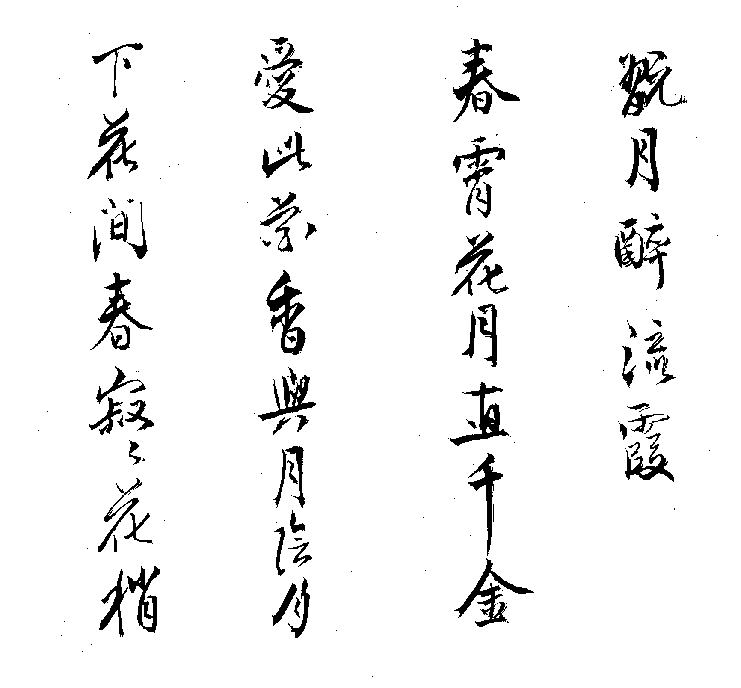 翫月醉流霞
春霄花月直千金
愛此花香與月陰月
下花間春寂〻花梢